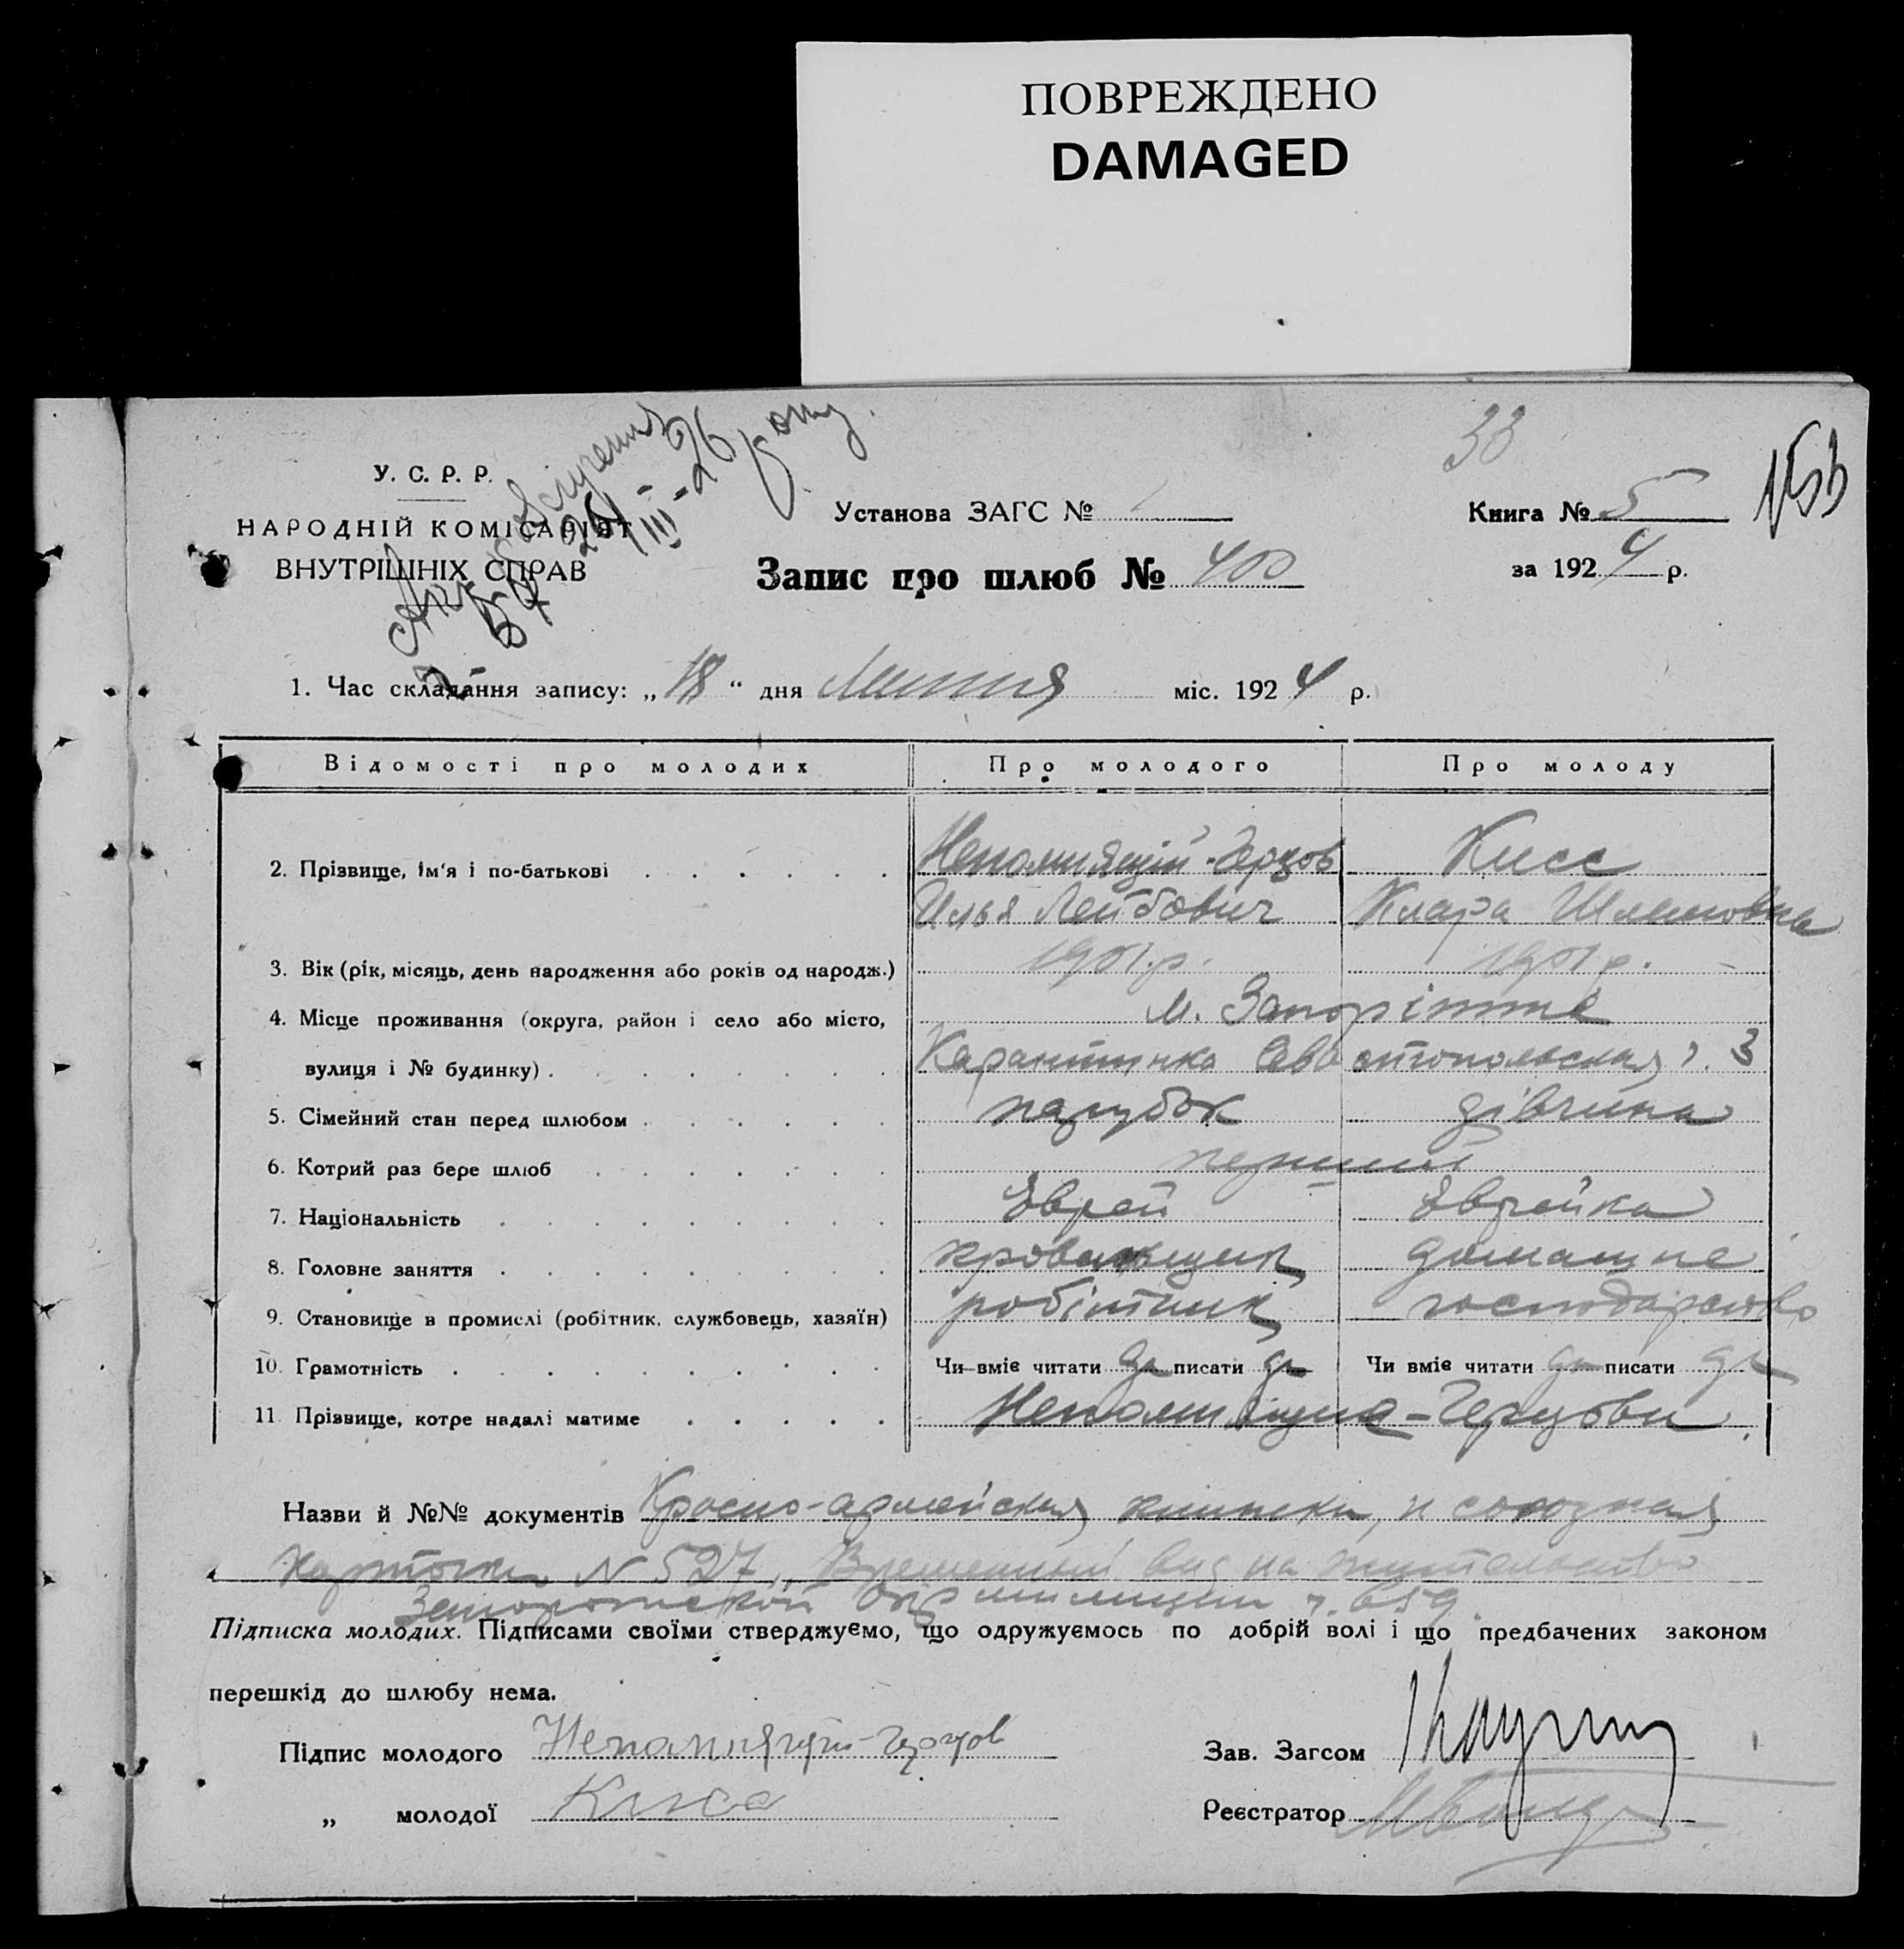 ПОВРЕЖДЕНО
DAMAGED
33
153
У. С. Р. Р.
НАРОДНІЙ КОМІСАРІЯТ
ВНУТРІШНІХ СПРАВ
Установа ЗАГС №
Книга № 5
Запис про шлюб № 400
за 1924 р.
1. Час складання запису: „18“ дня Липня міс. 1924 р.
Відомості про молодих Про молодого Про молоду
2. Прізвище, ім'я і по-батькові Непомнящій-Герцов Кисс
Илья Лейбович Клара Шлемовна
3. Вік (рік, місяць, день народження або років од народж.) 1901 р. 1901 р.
4. Місце проживання (округа, район і село або місто, м. Запоріжжє
вулиця і № будинку) Карантинка Севастопольская ч. 3
5. Сімейний стан перед шлюбом парубок дівчина
6. Котрий раз бере шлюб перший
7. Національність Єврей Єврейка
8. Головне заняття домашнє
9. Становище в промислі (робітник, службовець, хазяїн) робітник господарство
10. Грамотність Чи вміє читати да писати да Чи вміє читати да писати да
11. Прізвище, котре надалі матиме Непомнящие-Герцовы
Назви й №№ документів Красно-армейская книжка, и союзная
карточка N 527, Временный вид на жительство
Запорожской Окр милиции ч. 659.
Підписка молодих. Підписами своїми стверджуємо, що одружуємось по добрій волі і що предбачених законом
перешкід до шлюбу нема.
Підпис молодого Непомнящий-Герцов
Зав. Загсом
„ молодої Кисс
Реєстратор